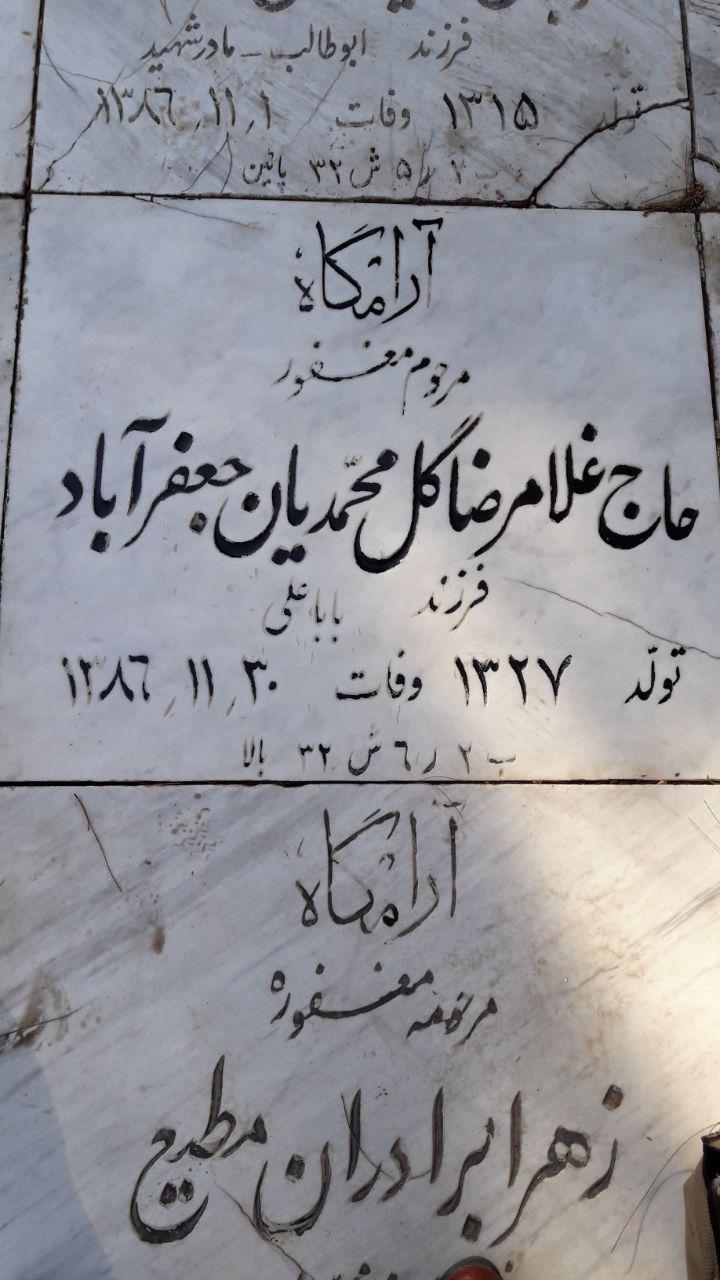 فرزند ابوطالب _ مادر شهید
تولّد ۱۳۱۵ وفات ۱ر۱۱ر۱۳۸۶
ب ۲ ر ۵ ش ۳۲ پائین
آرامگاه
مرحوم مغفور
حاج غلامرضا گل محمّدیان جعفرآباد
فرزند بابا علی
تولّد ۱۳۲۷ وفات ۳۰ر۱۱ر۱۳۸۶
ب ۲ ر ۶ ش ۳۲ بالا
آرامگاه
مرحومه مغفوره
زهرا برادران مطیع